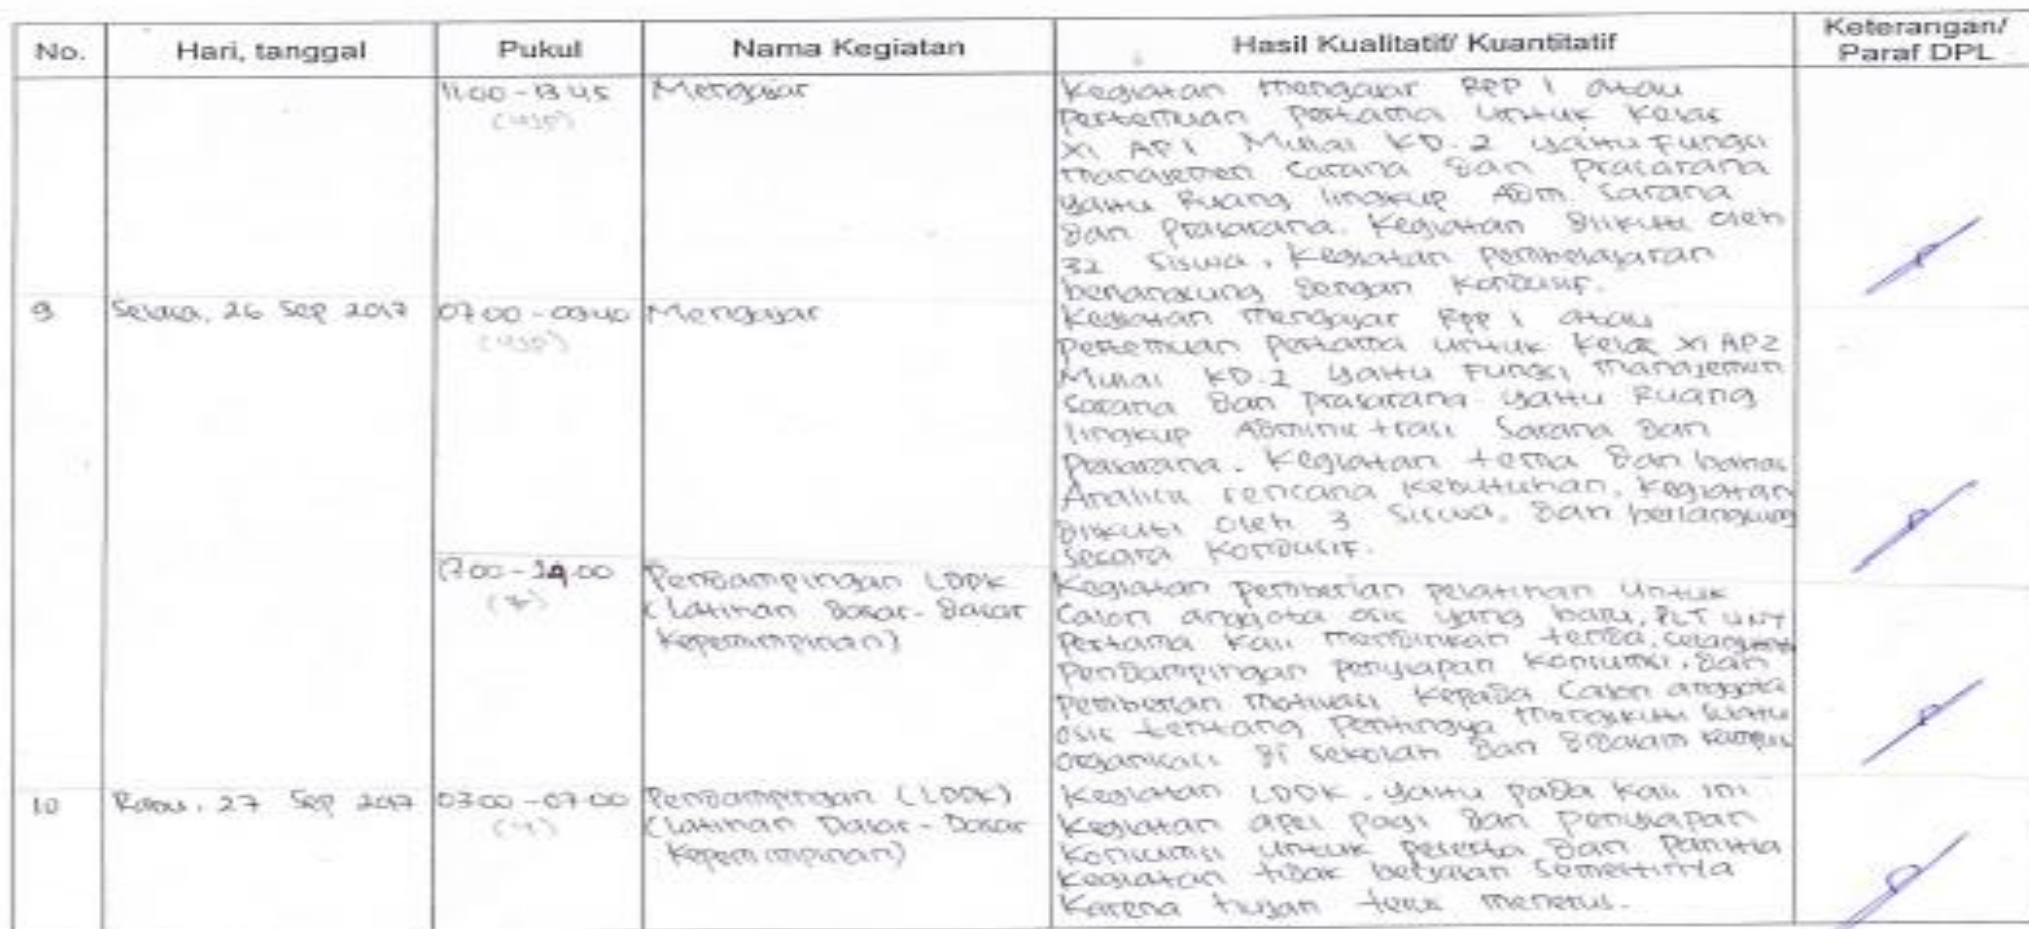 No. Hari, tanggal Pukul Nama Kegiatan Hasil Kualitatif/ Kuantitatif Keterangan/ Paraf DPL
11.00 - 13 45 Mengajar
(4JP)
Kegiatan mengajar RPP 1 atau
Pertemuan Pertama untuk Kelas
XI AP1 Mulai KD.2 yaitu Fungsi
Manajemen Sarana dan Prasarana
yaitu Ruang lingkup Adm. Sarana
dan Prasarana. Kegiatan diikuti oleh
32 Siswa. Kegiatan Pembelajaran
berlangsung dengan Kondusif.
9 Selasa, 26 Sep 2017 07.00 - 09.40 Mengajar
(4JP)
Kegiatan Mengajar RPP 1 atau
Pertemuan Pertama untuk Kelas XI AP2
Mulai KD.2 yaitu Fungsi Manajemen
Sarana dan prasarana yaitu Ruang
lingkup Administrasi Sarana dan
Prasarana. Kegiatan dan
Analisis rencana kebutuhan. Kegiatan
diikuti oleh 3 Siswa. dan berlangsung
secara Kondusif.
Pendampingan LDDK
(Latihan Dasar-Dasar
Kepemimpinan)
Kegiatan pemberian pelatihan untuk
Calon anggota osis yang baru, PLT UNY
Pertama Kali mendirikan tenda,
Pendampingan penyiapan Konsumsi. dan
pemberian Motivasi Kepada Calon anggota
osis tentang Pentingya mengikuti suatu
organisasi di sekolah dan didalam kampus
10 Rabu, 27 Sep 2017 03.00 - 07.00 Pendampingan (LDDK)
(4)
(Latihan Dasar-Dasar
Kepemimpinan)
Kegiatan LDDK. yaitu pada Kali ini
Kegiatan apel pagi dan Penyiapan
Konsumsi untuk peserta dan Panitia
Kegiatan tidak berjalan Semestinya
Karena hujan terus menerus.